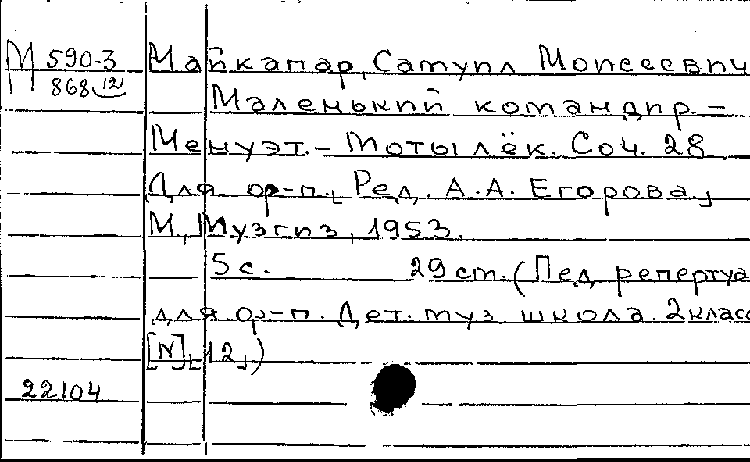 М 590-3
868 (12)
Майкапар, Самуил Моисеевич
Маленький командир. –
Менуэт. – Мотылёк. Соч. 28
Для ф-п. [Ред. А.А. Егорова]
М., Музгиз, 1953.
5 с. 29 см. (Пед. репертуа
для ф-п. Дет. муз. школа. 2 класс
[N] [12])
22104